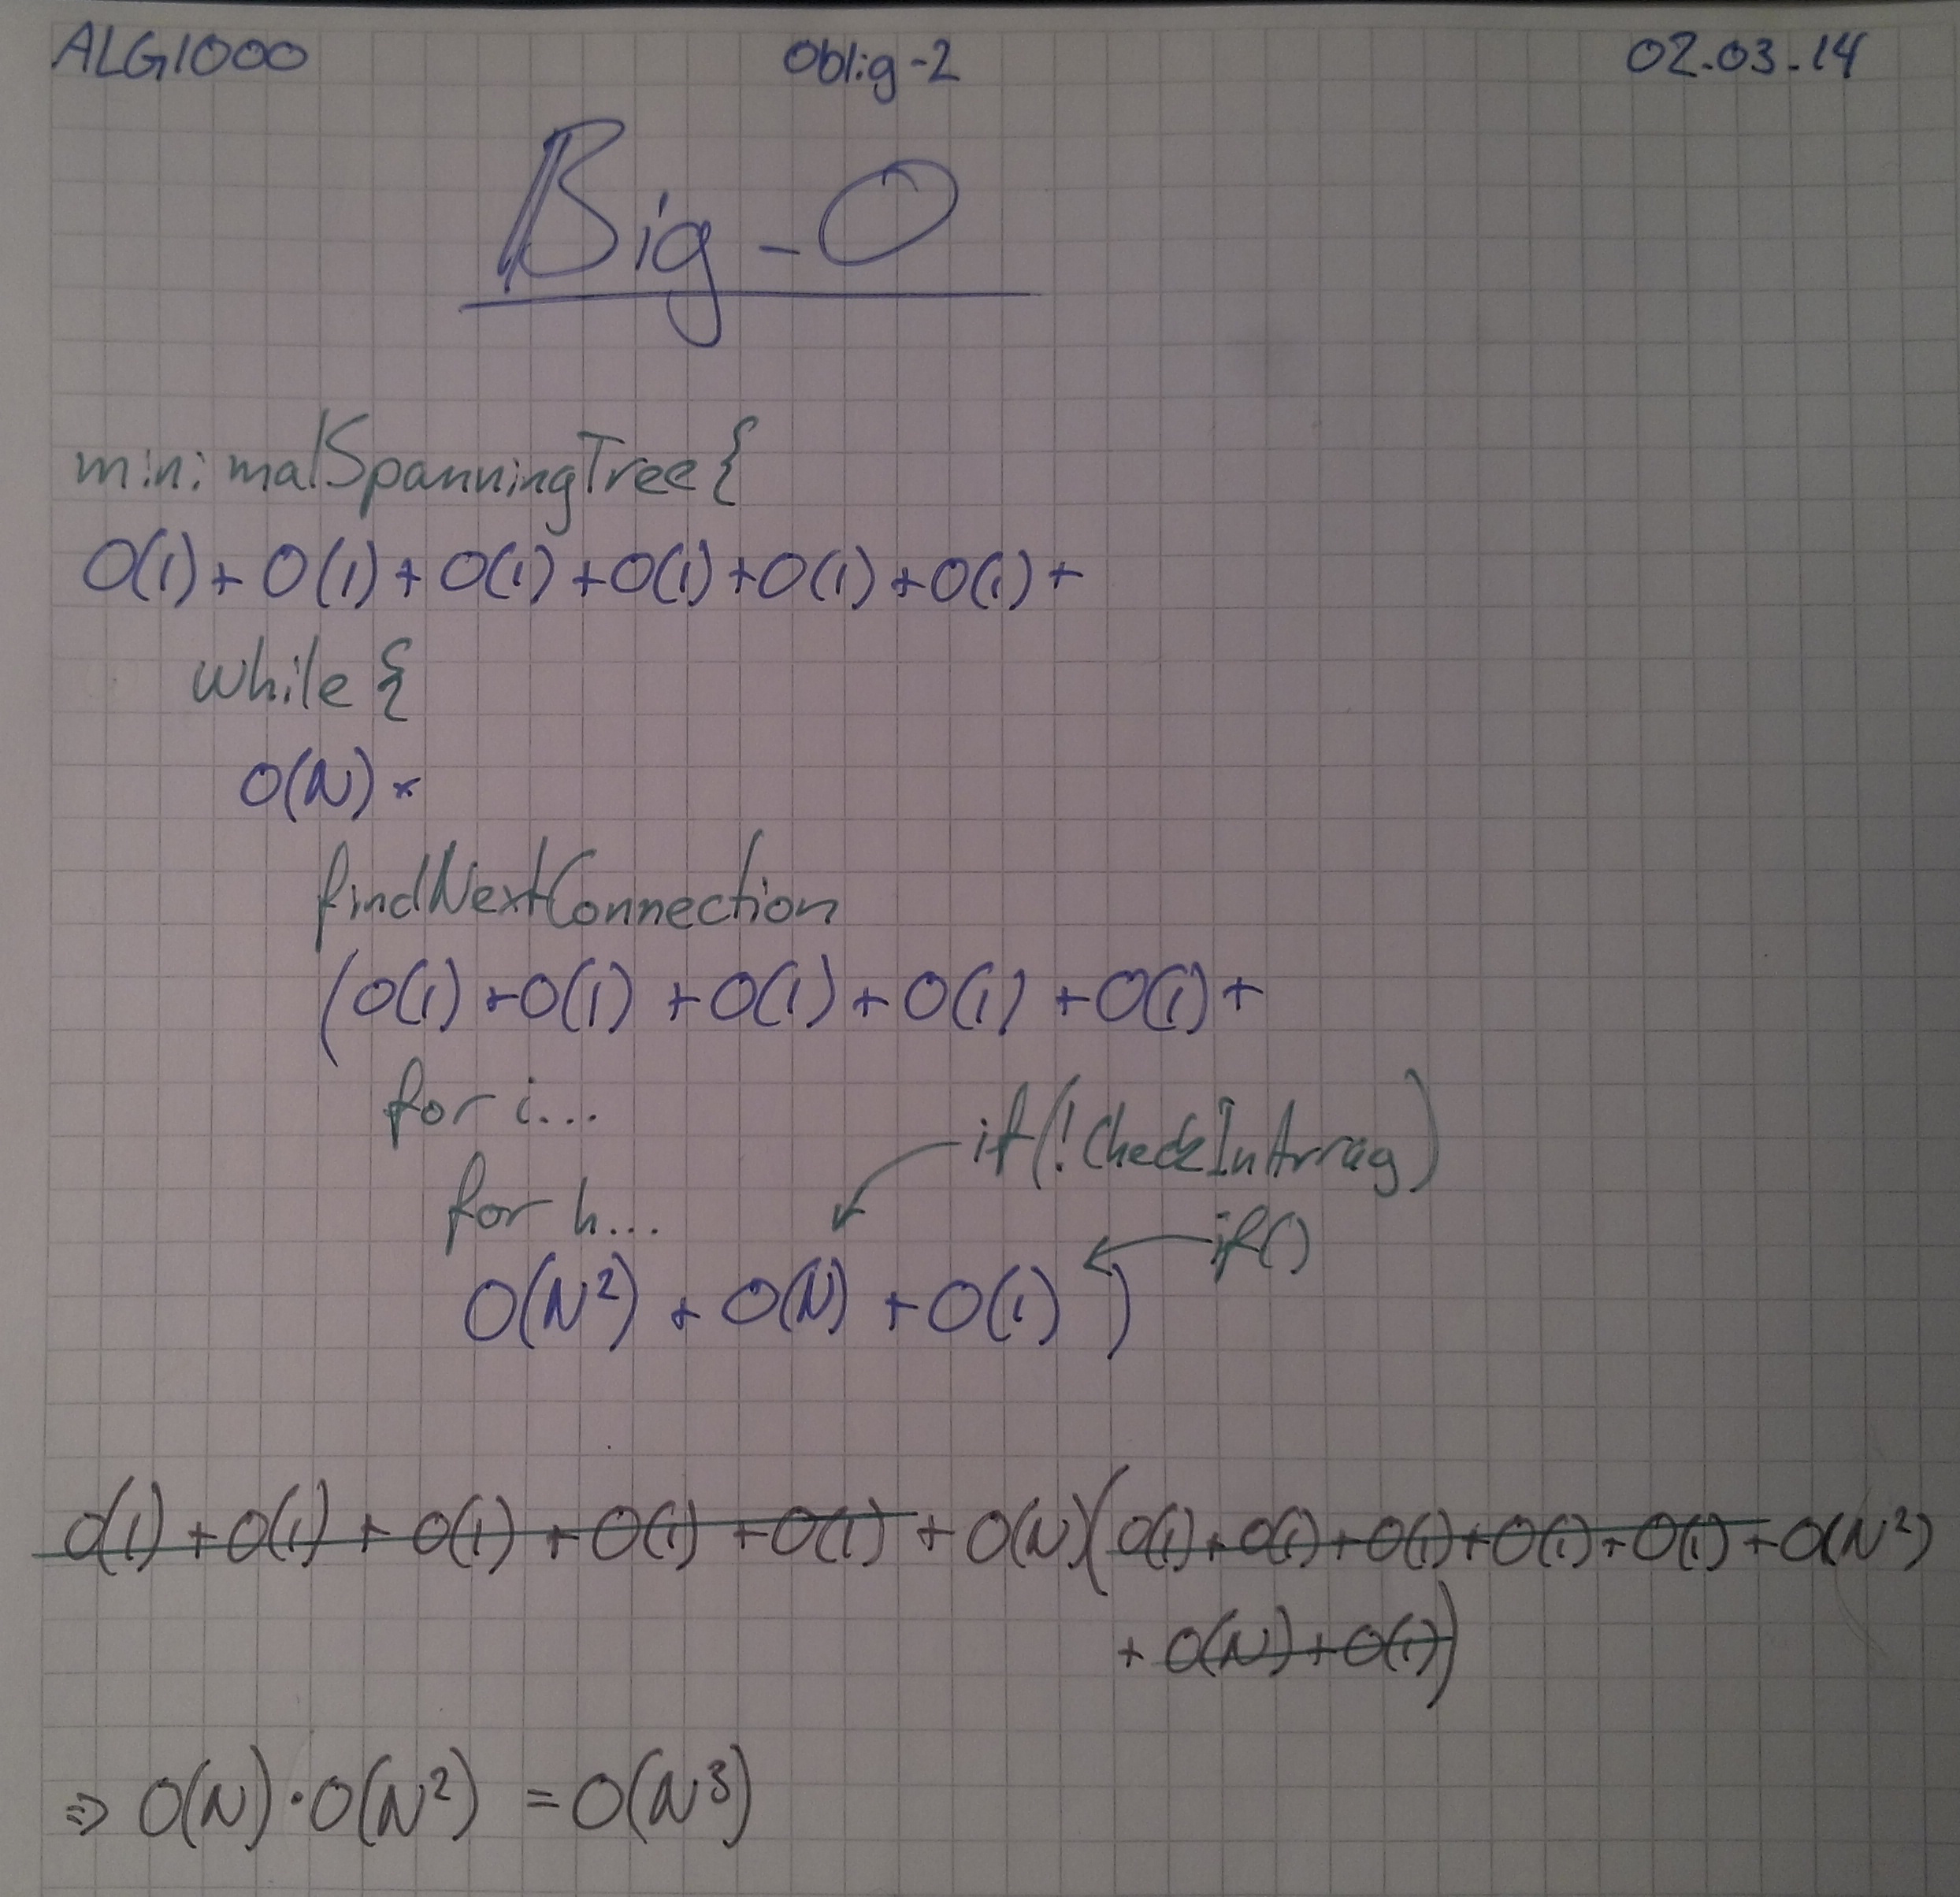 ALG1000 Oblig-2 02.03.14
Big-O
minimalSpanningTree{
O(1) + O(1) + O(1) + O(1) + O(1) + O(1) +
while {
O(N) *
findNextConnection
(O(1) + O(1) + O(1) + O(1) + O(1) +
for i...
if(!CheckInArray)
for h...
if()
O(N²) + O(N) + O(1) )
O(1) + O(1) + O(1) + O(1) + O(1) + O(N)(O(1) + O(1) + O(1) + O(1) + O(1) + O(N²)
+ O(N) + O(1))
⇒ O(N) · O(N²) = O(N³)